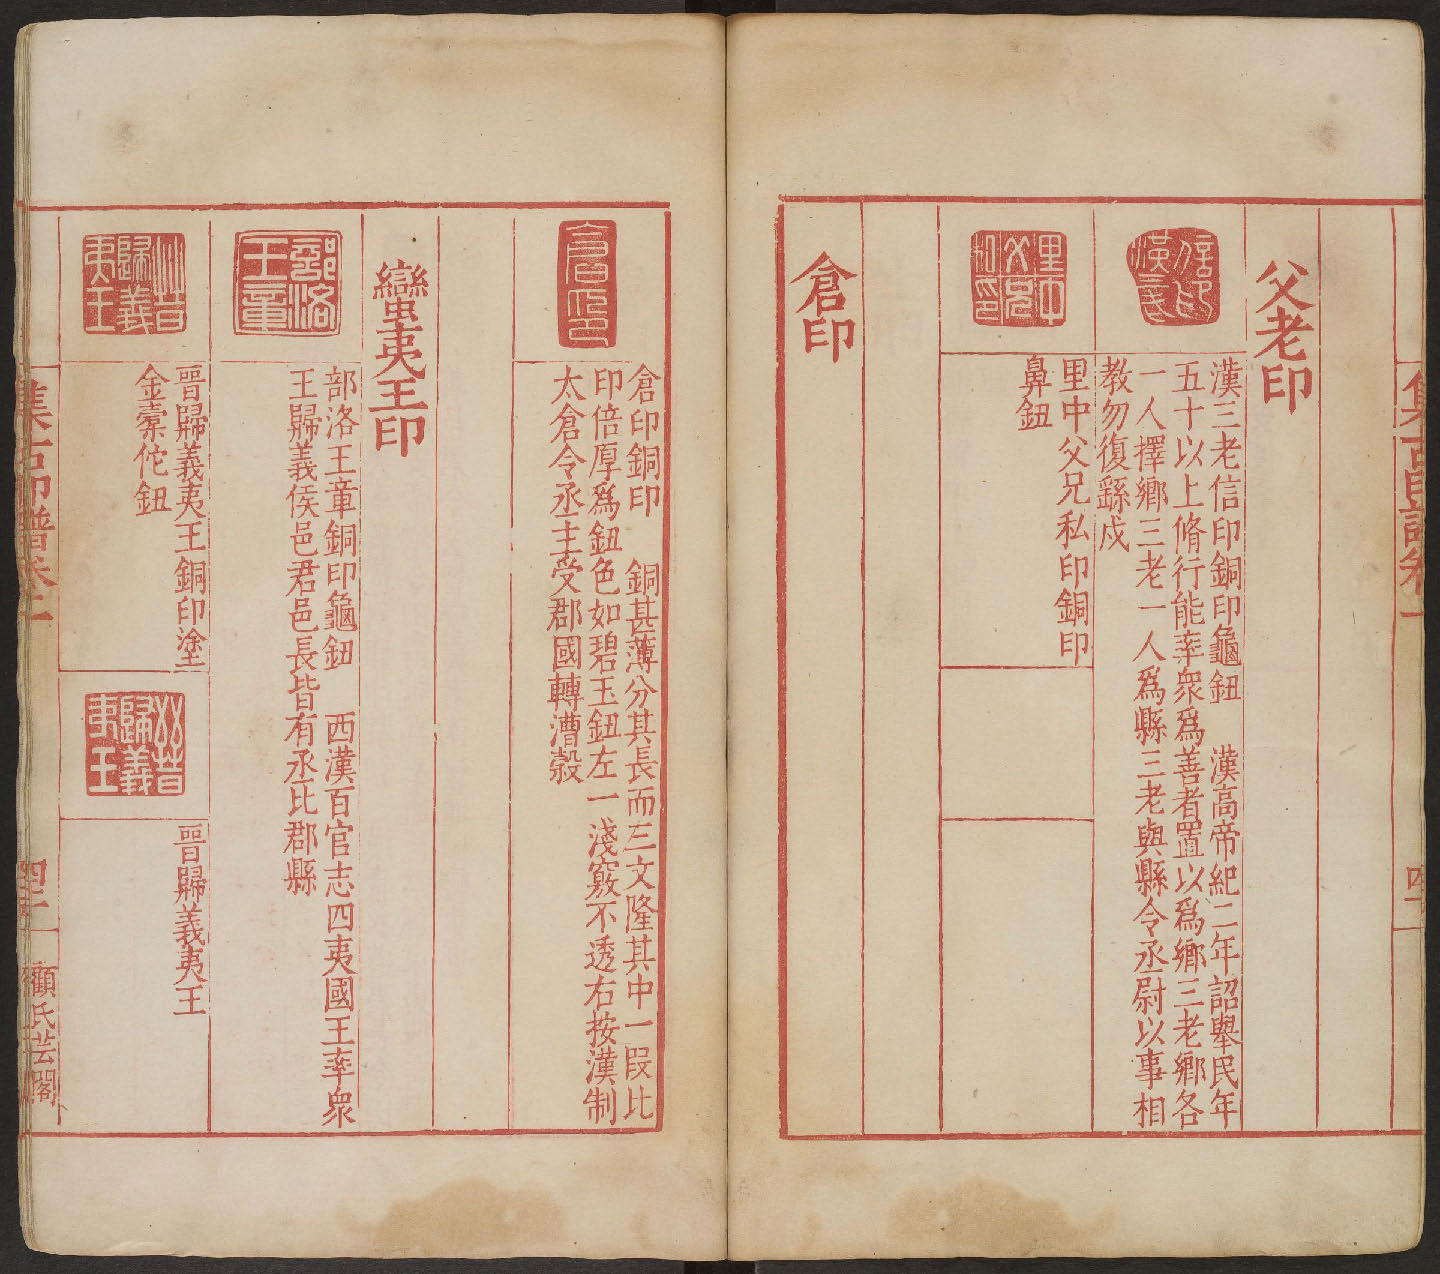 父老印
漢三老信印銅印龜鈕　漢高帝紀二年詔舉民年
五十以上脩行能率衆爲善者置以爲鄉三老鄉各
一人擇鄉三老一人爲縣三老與縣令丞尉以事相
教勿復繇戍
里中父兄私印銅印
鼻鈕
倉印
倉印
倉印銅印　銅甚薄分其長而三文隆其中一段比
印倍厚爲鈕色如碧玉鈕左一淺竅不透右按漢制
太倉令丞主受郡國轉漕穀
蠻夷王印
部洛王童銅印龜鈕　西漢百官志四夷國王率衆
王歸義侯邑君邑長皆有丞比郡縣
晉歸義夷王
晉歸義夷王銅印塗
金橐佗鈕
晉歸義夷王
晉歸義夷王
集古印譜卷二
顧氏芸閣